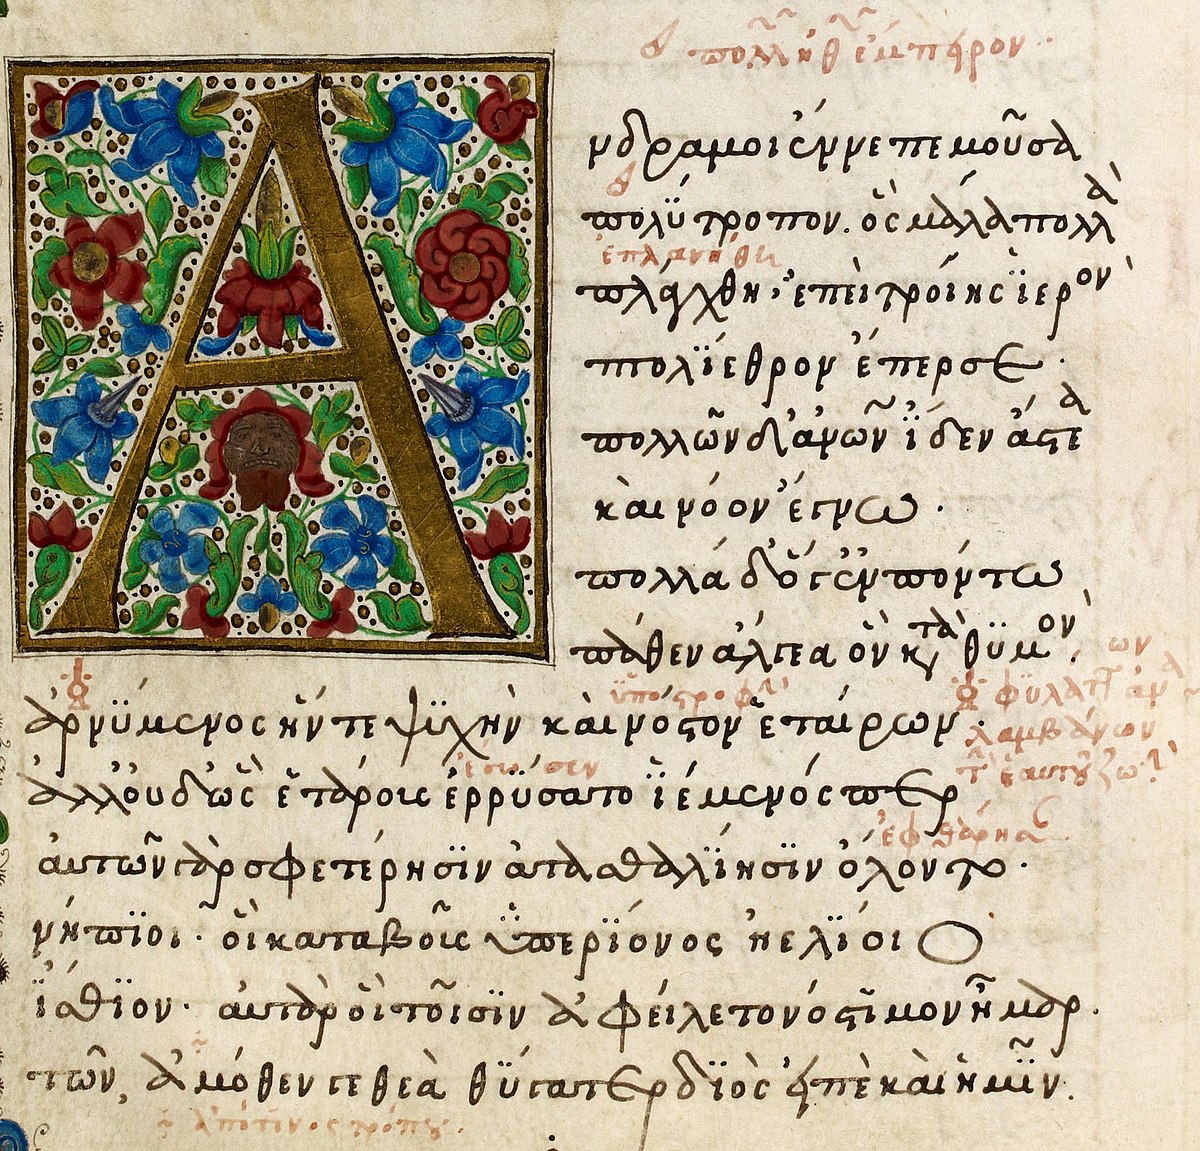 πολλ
ἔμπειρον
Α
νδρα μοι ἔννεπε μοῦσα
πολύτροπον. ὃς μάλα πολλὰ
ἐπλανήθη
πλάγχθη, ἐπεὶ τροίης ἱερὸν
πτολίεθρον ἔπερσε.
πολλῶν δ' ἀνθρώπων ἴδεν ἄστεα
καὶ νόον ἔγνω.
πολλὰ δ' ὅγ' ἐν πόντω
πάθεν ἄλγεα ὃν κατὰ θυμὸν.
ὑποστροφὴν
ἀρνύμενος ἥν τε ψυχὴν καὶ νόστον ἑταίρων.
λαμβάνων
ἔσωσεν
ἀλλ' οὐδ' ὣς ἑτάρους ἐρρύσατο ἱέμενός περ
ἐφθάρησαν
αὐτῶν γὰρ σφετέρησιν ἀτασθαλίησιν ὄλοντο.
νήπιοι. οἳ κατὰ βοῦς ὑπερίονος ἠελίοιο
ἤσθιον. αὐτὰρ ὃ τοῖσιν ἀφείλετο νόστιμον ἦμαρ.
τῶν, ἁμόθεν γε θεὰ θύγατερ διὸς εἰπὲ καὶ ἡμῖν.
ἀπό τινος τρόπου.